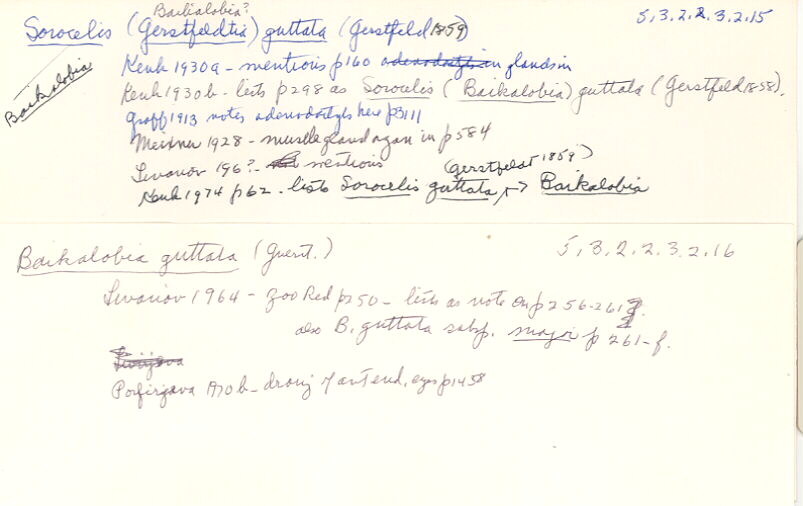 Baikalobia?
Sorocelis (Gerstfeldtia) guttata (Gerstfeld 1859) 5,3,2,2,3,2,15
Baikalobia
Kenk 1930a - mentions p160 glands in
Kenk 1930b - lists p298 as Sorocelis (Baikalobia) guttata (Gerstfeld 1858).
Graff 1913 notes adenodactyls here p3111
Meixner 1928 - muscle gland organ in p584
Livanov 196? - mentions
(Gerstfeldt 1859)
Kenk 1974 p62 - lists Sorocelis guttata, → Baikalobia
Baikalobia guttata (Gerst.) 5,3,2,2,3,2,16
Livanov 1964 - Zoo Red p250 - lists as note on p256-261
also B. guttata subsp. major p 261-f.
Porfirjava 1970b - drawing of ant end, eyes p1458